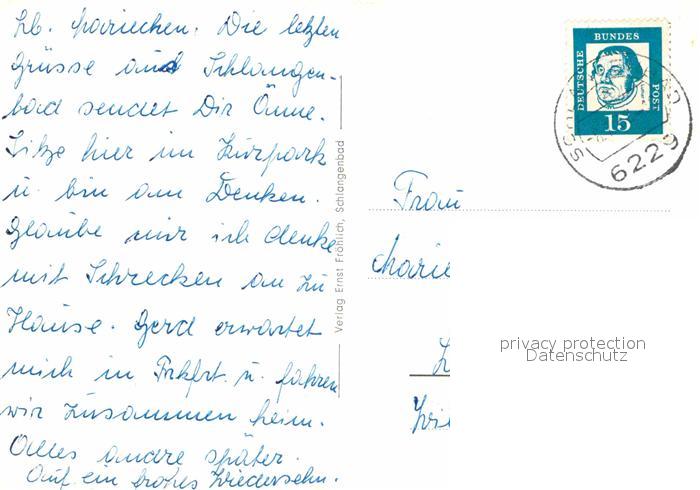 Lb. Mariechen. Die letzten
Grüsse aus Schlangen-
bad sendet Dir Änne.
Sitze hier im Kurpark
u. bin am Denken.
Glaube mir ich denke
mit Schrecken an zu
Hause. Gerd erwartet
mich in Frkfrt. u. fahren
wir zusammen heim.
Alles andre später.
Auf ein frohes Wiedersehn.
Verlag Ernst Fröhlich, Schlangenbad
DEUTSCHE BUNDES POST
15
6229
Frau
Marie
privacy protection
Datenschutz